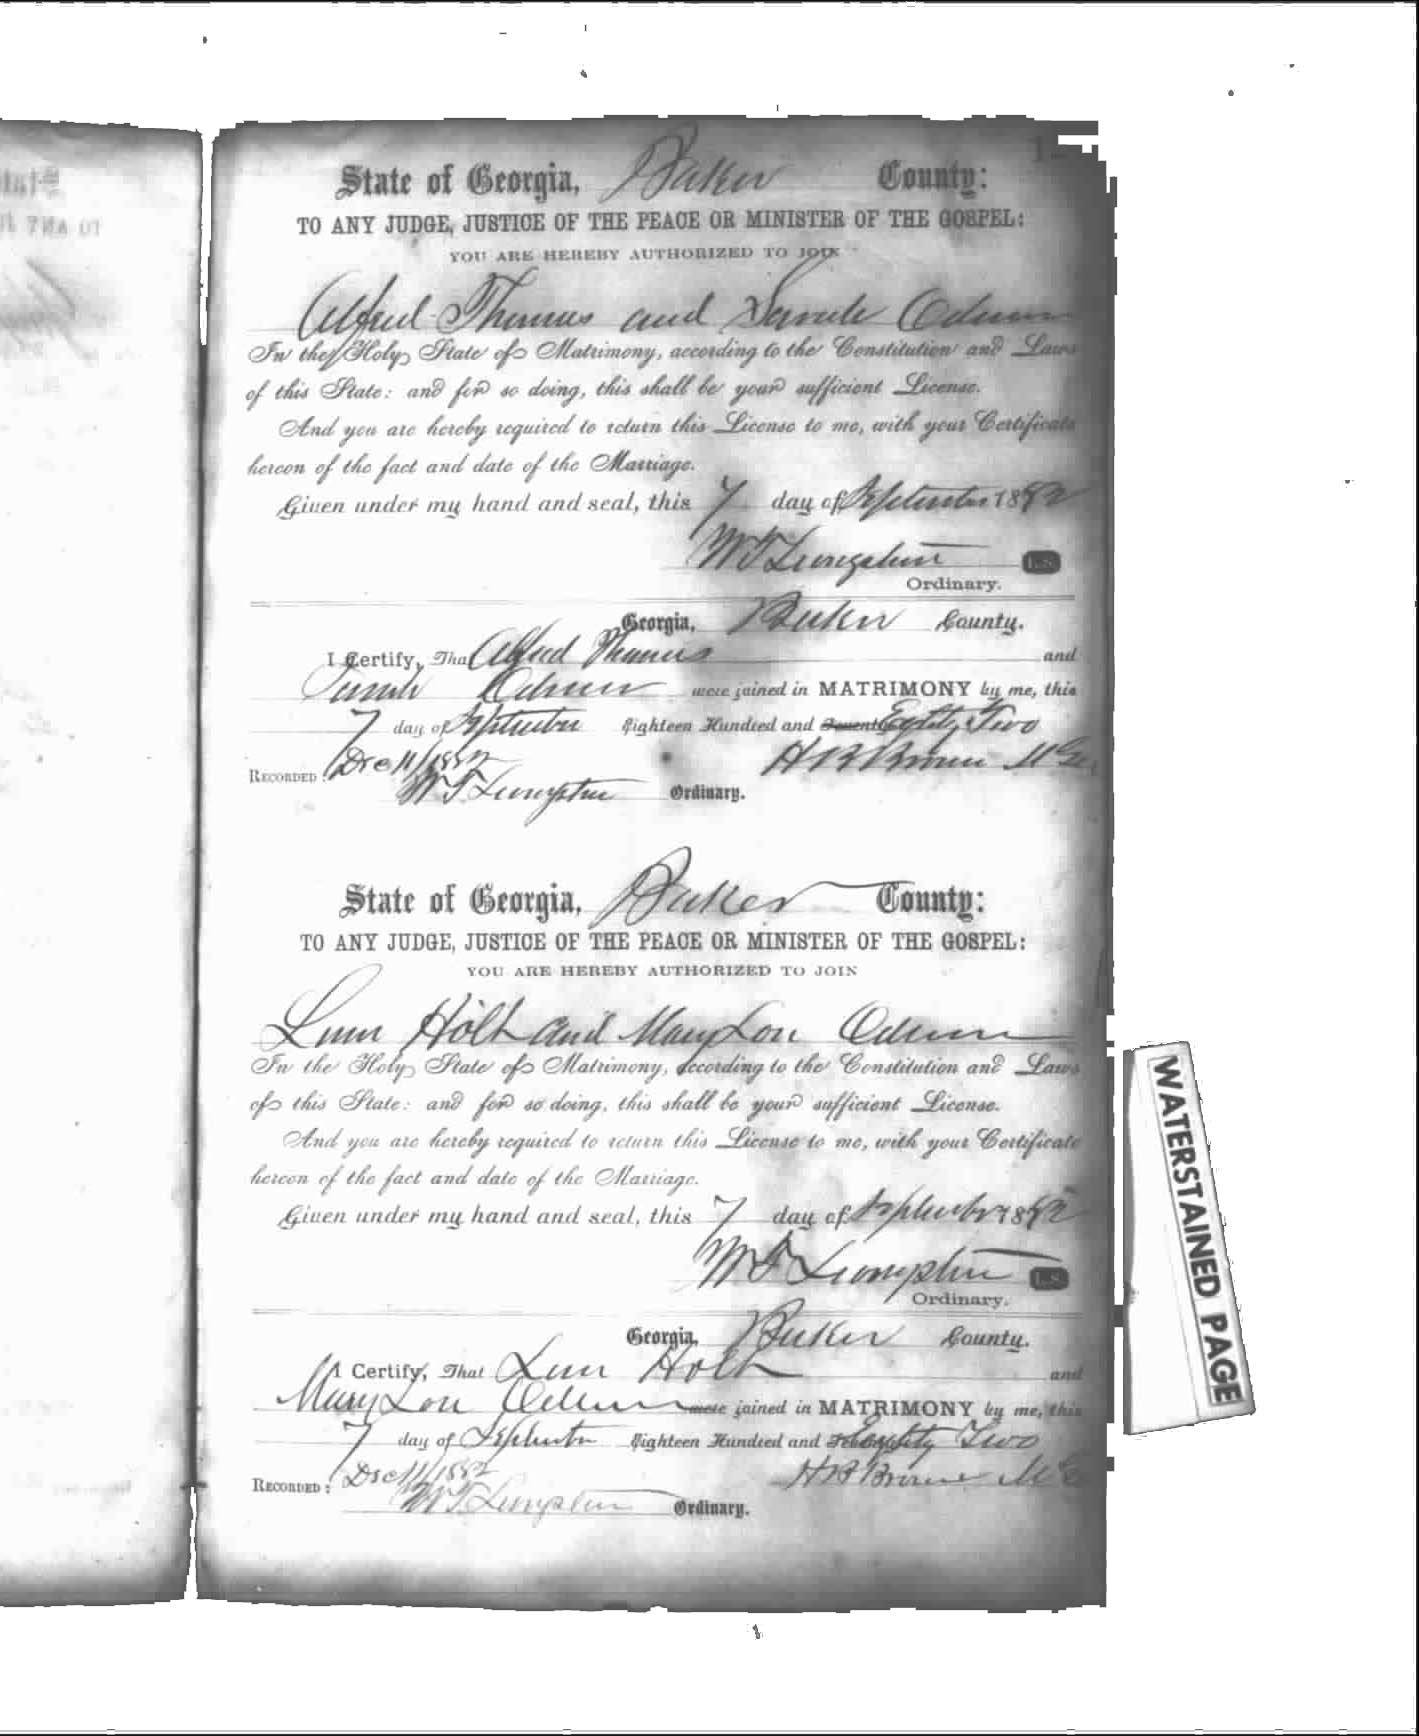 State of Georgia, Baker County:
TO ANY JUDGE, JUSTICE OF THE PEACE OR MINISTER OF THE GOSPEL:
YOU ARE HEREBY AUTHORIZED TO JOIN
Alfred Thomas and Sarah Odum
In the Holy State of Matrimony, according to the Constitution and Laws
of this State: and for so doing, this shall be your sufficient License.
And you are hereby required to return this License to me, with your Certificate
hereon of the fact and date of the Marriage.
Given under my hand and seal, this 7 day of September 1882
W T Livingston L.S.
Ordinary.
Georgia, Baker County.
I Certify, That Alfred Thomas and
Sarah Odum were joined in MATRIMONY by me, this
7 day of September Eighteen Hundred and Eighty Two
H B Brown M G
RECORDED Dec 11/1882
W T Livingston Ordinary.
State of Georgia, Baker County:
TO ANY JUDGE, JUSTICE OF THE PEACE OR MINISTER OF THE GOSPEL:
YOU ARE HEREBY AUTHORIZED TO JOIN
Holt and Mary Lou Odum
In the Holy State of Matrimony, according to the Constitution and Laws
of this State: and for so doing, this shall be your sufficient License.
And you are hereby required to return this License to me, with your Certificate
hereon of the fact and date of the Marriage.
Given under my hand and seal, this 7 day of September 1882
W T Livingston L.S.
Ordinary.
Georgia, Baker County.
I Certify, That Holt and
Mary Lou Odum were joined in MATRIMONY by me, this
7 day of September Eighteen Hundred and Eighty Two
H B Brown M G
RECORDED: Dec 11/1882
W T Livingston Ordinary.
WATERSTAINED PAGE